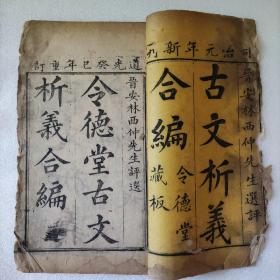 同治元年新刊
晉安林西仲先生選評
古文析義
合編
令德堂
藏板
道光癸巳年重訂
晉安林西仲先生評選
令德堂古文
析義合編